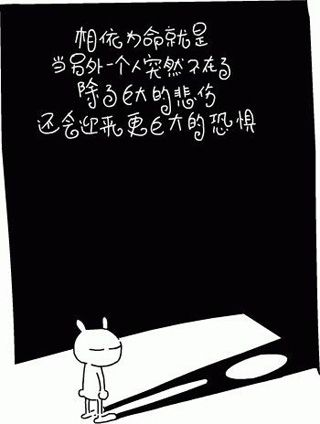 相依为命就是
当另外一个人突然不在了
除了巨大的悲伤
还会迎来更巨大的恐惧